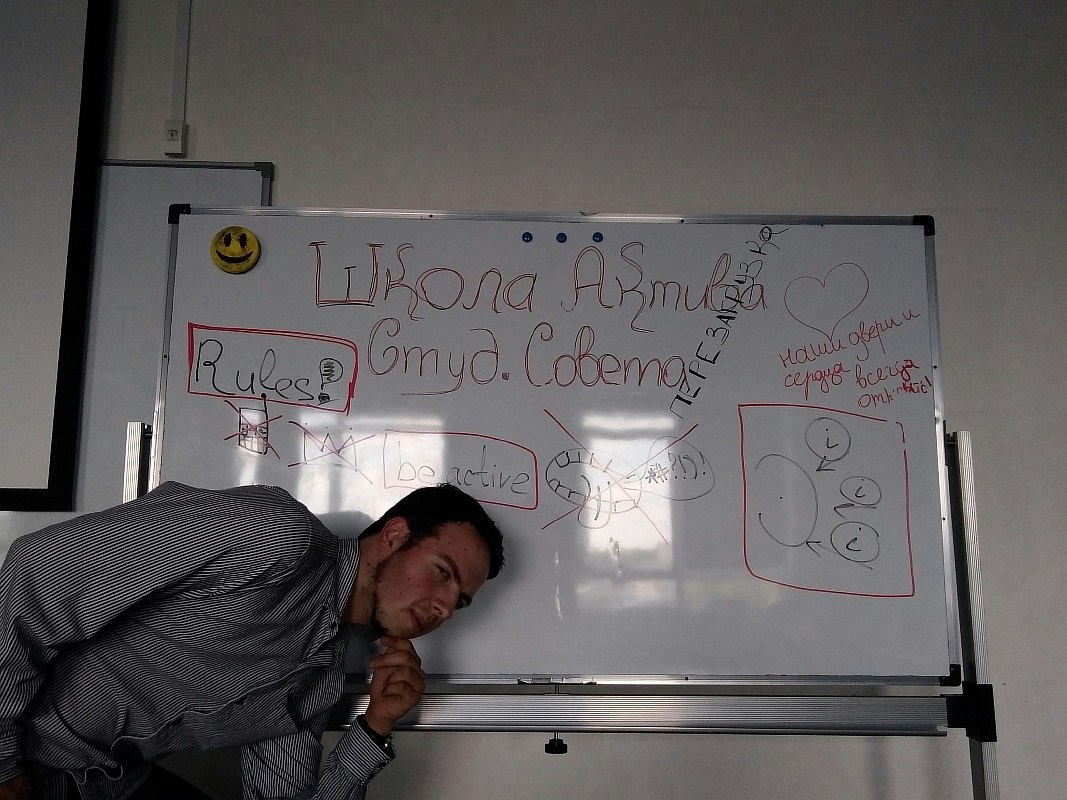 Школа Актива
Студ. Совета
ПЕРЕЗАГРУЗКА
наши двери и
сердца всегда
Rules!
be active
#?!?!
i
i
i